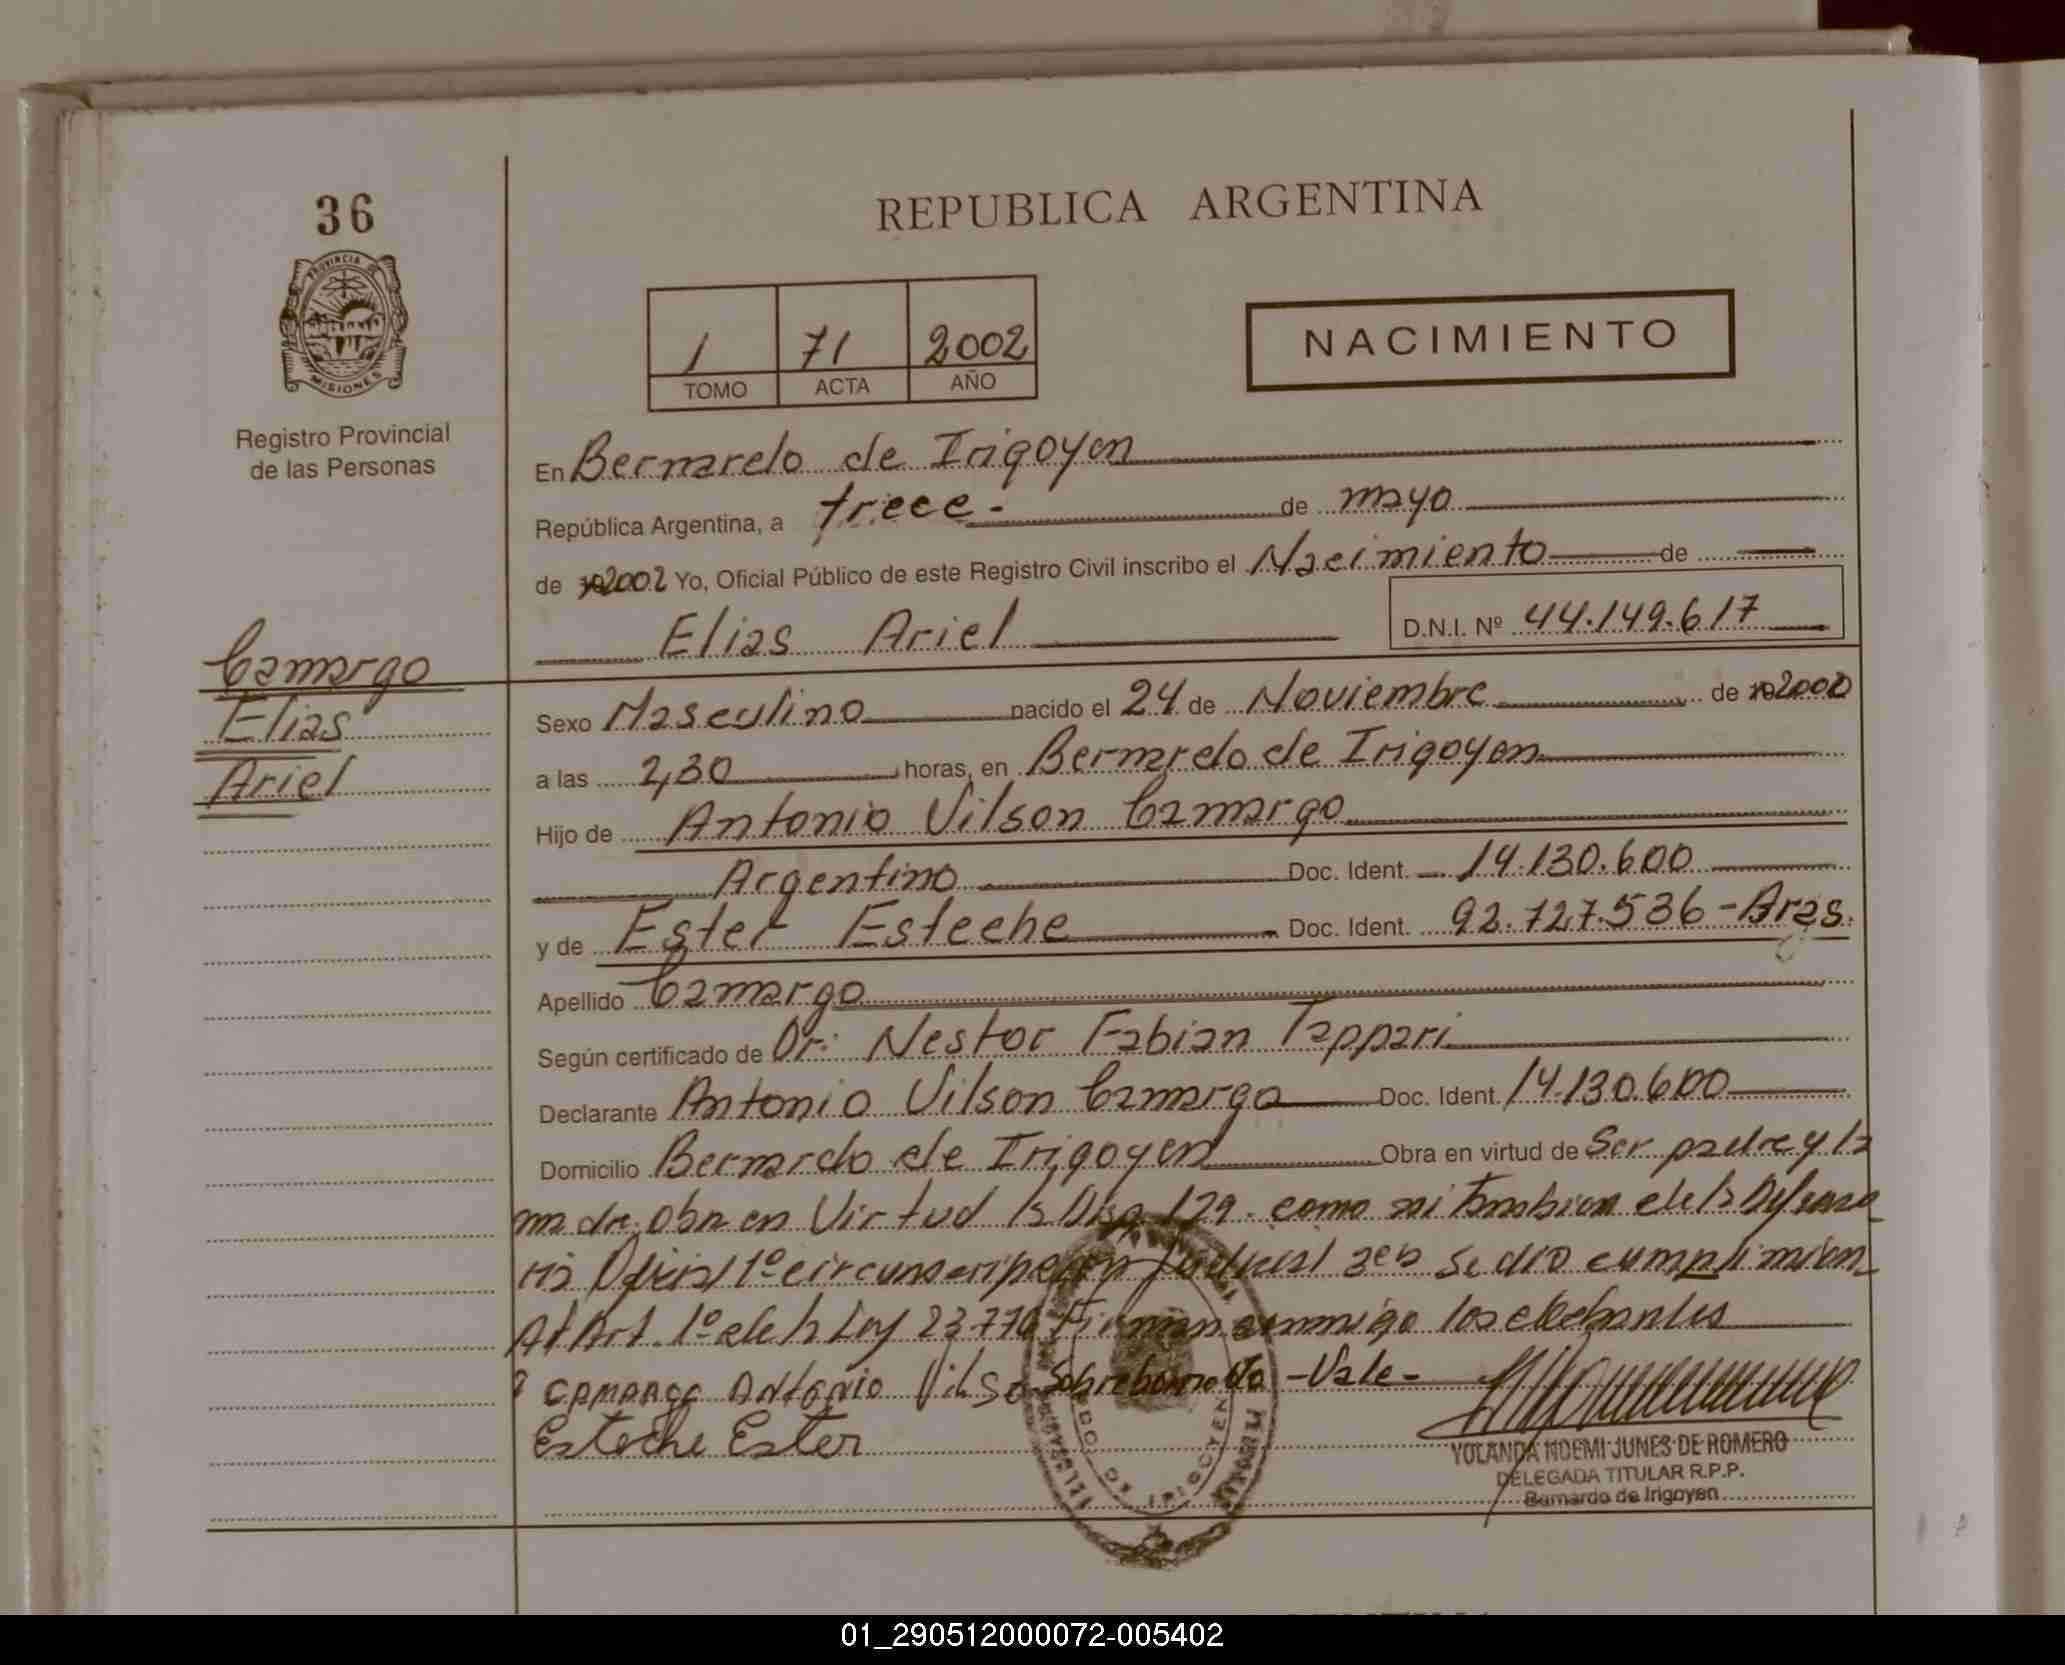 36
PROVINCIA DE
MISIONES
Registro Provincial
de las Personas
REPUBLICA ARGENTINA
1 71 2002
TOMO ACTA AÑO
NACIMIENTO
En Bernardo de Irigoyen
República Argentina, a trece.- de mayo
de 2002 Yo, Oficial Público de este Registro Civil inscribo el Nacimiento de
Elias Ariel D.N.I. Nº 44.149.617
Camargo
Elias
Ariel
Sexo Masculino nacido el 24 de Noviembre de 2000
a las 2,30 horas, en Bernardo de Irigoyen
Hijo de Antonio Vilson Camargo
Argentino Doc. Ident. 14.130.600
y de Ester Esteche Doc. Ident. 92.727.536 - Aras.
Apellido Camargo
Según certificado de Dr: Nestor Fabian Tappari
Declarante Antonio Vilson Camargo Doc. Ident. 14.130.600
Domicilio Bernardo de Irigoyen Obra en virtud de Ser padre y la
madre. Obra en Virtud la Disp. 129. como asi tambien de la Defenso
ria Oficial 1º circunscripcion Judicial se dio cumplimien
Art. 1º de la Ley 23.776 Firman conmigo los
CAMARGO ANTONIO Vilson Sobreborrado - Vale -
Esteche Ester
DO. DE IRIGOYEN
YOLANDA NOEMI JUNES DE ROMERO
DELEGADA TITULAR R.P.P.
Bernardo de Irigoyen
01_290512000072-005402